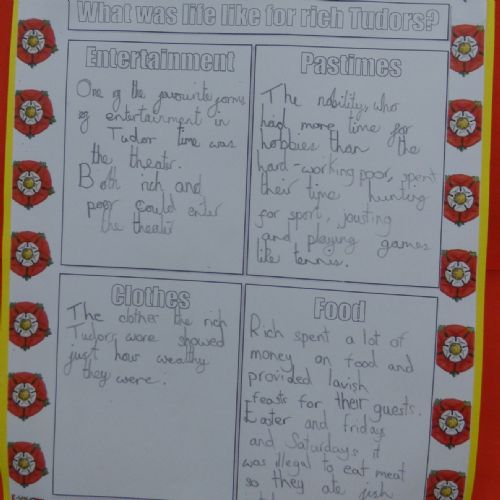 What was life like for rich Tudors?
Entertainment
One of the favourite forms
of entertainment in
Tudor time was
the theater.
Both rich and
poor could enter
the theater
Pastimes
The nobility, who
had more time for
hobbies than the
hard-working poor, spent
their time hunting
for sport, jousting
and playing games
like tennis.
Clothes
The clother the rich
Tudors were showed
just how wealthy
they were.
Food
Rich spent a lot of
money on food and
provided lavish
feasts for their guests.
Easter and fridays
and Saturdays it
was illegal to eat meat
so they ate fish